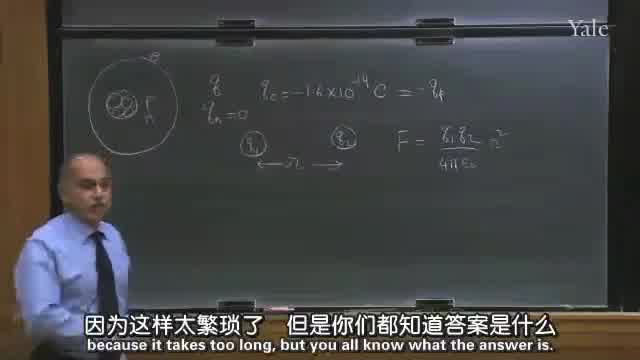 Yale
q q_e = -1.6 × 10^-19 C = -q_p
q_n = 0
q_1 q_2 F = q_1 q_2 / 4πε_0 r^2
r
因为这样太繁琐了 但是你们都知道答案是什么
because it takes too long, but you all know what the answer is.